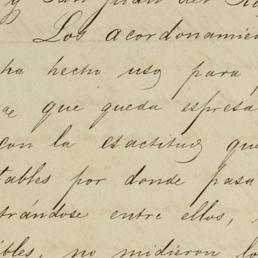 y San Juan del
Los acordonamien
ha hecho uso para
que queda espresa
con la esactitud que
tables por donde pasa
trándose entre ellos,
ibles, no midieron lo